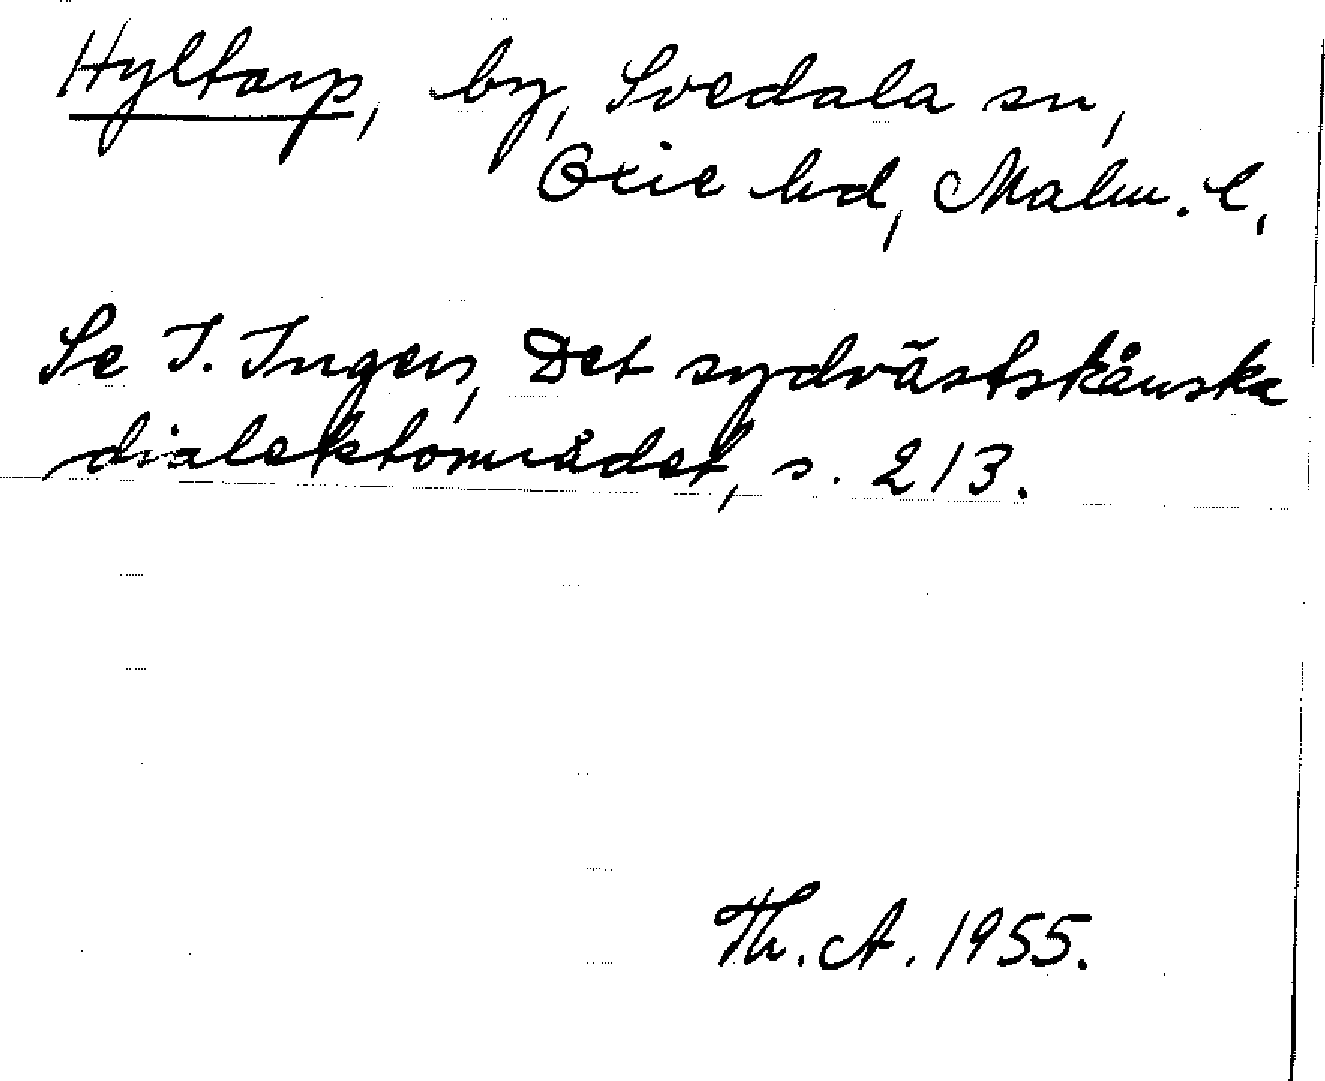 Hyltarp, by, Svedala sn,
Oxie hd, Malm. l.
Se I. Ingers, Det sydvästskånska
dialektområdet, s. 213.
Th. A. 1955.